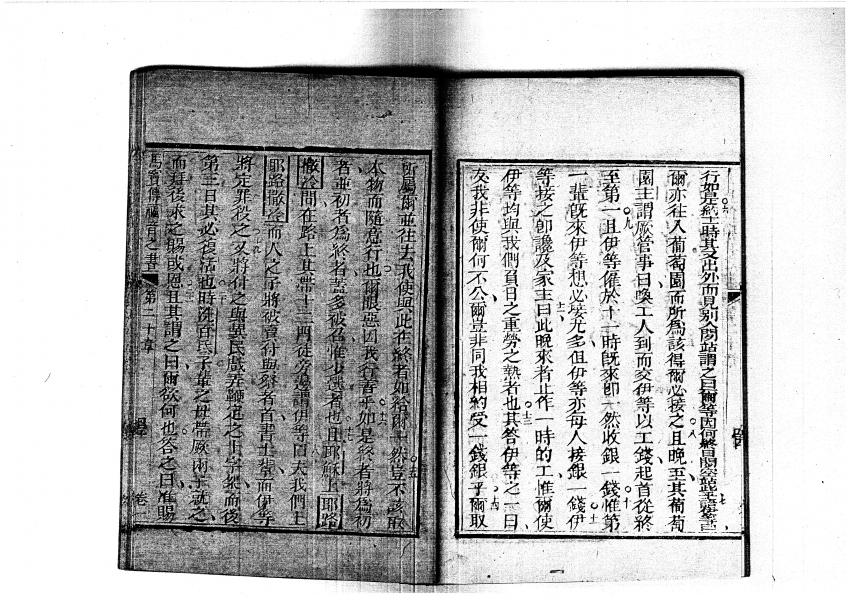 行如是於十一時其又出外而見別人閒站謂之曰爾等因何終日閒
爾亦往入葡萄園而所為該得爾必接之且晚至其葡萄
園主謂厥管事曰喚工人到而交伊等以工錢起首從終
至第一且伊等僱於十一時既來即一然收銀一錢惟第
一輩既來伊等想必接尤多但伊等亦每人接銀一錢伊
等接之即讒及家主曰此晚來者止作一時的工惟爾使
伊等均與我們負日之重勞之熱者也其答伊等之一曰
友我非使爾何不公爾豈非同我相約受一錢銀乎爾取
所屬爾並往去我使與此在終者如給爾一然豈不該取
本物而隨意行也爾眼惡因我行善乎如是終者將為初
者並初者為終者蓋多被召惟少選者也且耶穌上耶路
撒冷間在路上其帶十二門徒旁邊謂伊等曰夫我們上
耶路撒冷而人之子將被賣付與祭者首書士輩而伊等
將定罪殺之又將付之與異民戲弄鞭之釘十字架而後
第三日其必復活也時洗百氏子輩之母帶厥兩子就之
而拜後求之賜或恩且其謂之曰爾欲何也答之曰准賜
馬竇傳福音之書 第二十章 卷一